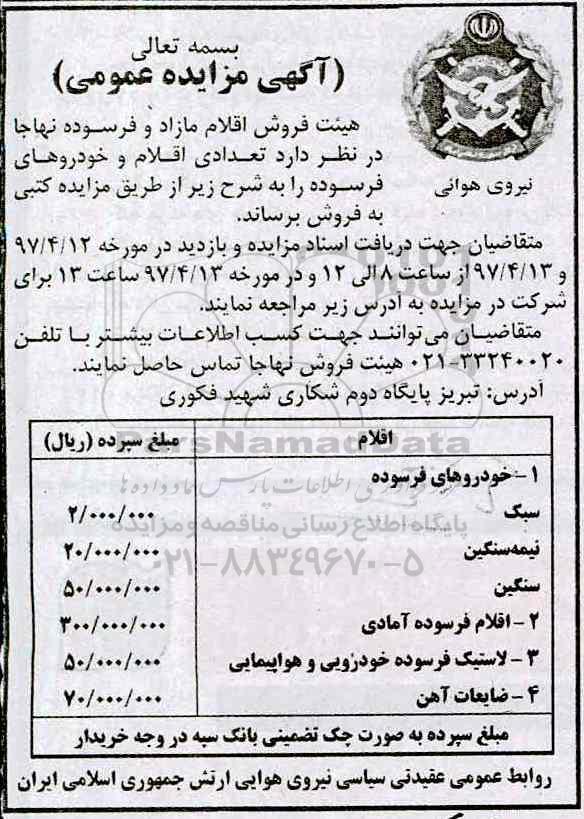 بسمه تعالی
(آگهی مزایده عمومی)
نیروی هوائی
هیئت فروش اقلام مازاد و فرسوده نهاجا
در نظر دارد تعدادی اقلام و خودروهای
فرسوده را به شرح زیر از طریق مزایده کتبی
به فروش برساند.
متقاضیان جهت دریافت اسناد مزایده و بازدید در مورخه ۹۷/۴/۱۲
و ۹۷/۴/۱۳ از ساعت ۸ الی ۱۲ و در مورخه ۹۷/۴/۱۳ ساعت ۱۳ برای
شرکت در مزایده به آدرس زیر مراجعه نمایند.
متقاضیان می‌توانند جهت کسب اطلاعات بیشتر با تلفن
۰۲۱-۳۳۲۴۰۰۲۰ هیئت فروش نهاجا تماس حاصل نمایند.
آدرس: تبریز پایگاه دوم شکاری شهید فکوری
اقلام مبلغ سپرده (ریال)
ParsNamadData
۱- خودروهای فرسوده
سبک ۲/۰۰۰/۰۰۰
پایگاه اطلاع رسانی مناقصه و مزایده
نیمه‌سنگین ۲۰/۰۰۰/۰۰۰
۰۲۱-۸۸۳۴۹۶۷۰-۵
سنگین ۵۰/۰۰۰/۰۰۰
۲- اقلام فرسوده آمادی ۳۰۰/۰۰۰/۰۰۰
۳- لاستیک فرسوده خودرویی و هواپیمایی ۵۰/۰۰۰/۰۰۰
۴- ضایعات آهن ۷۰/۰۰۰/۰۰۰
مبلغ سپرده به صورت چک تضمینی بانک سپه در وجه خریدار
روابط عمومی عقیدتی سیاسی نیروی هوایی ارتش جمهوری اسلامی ایران